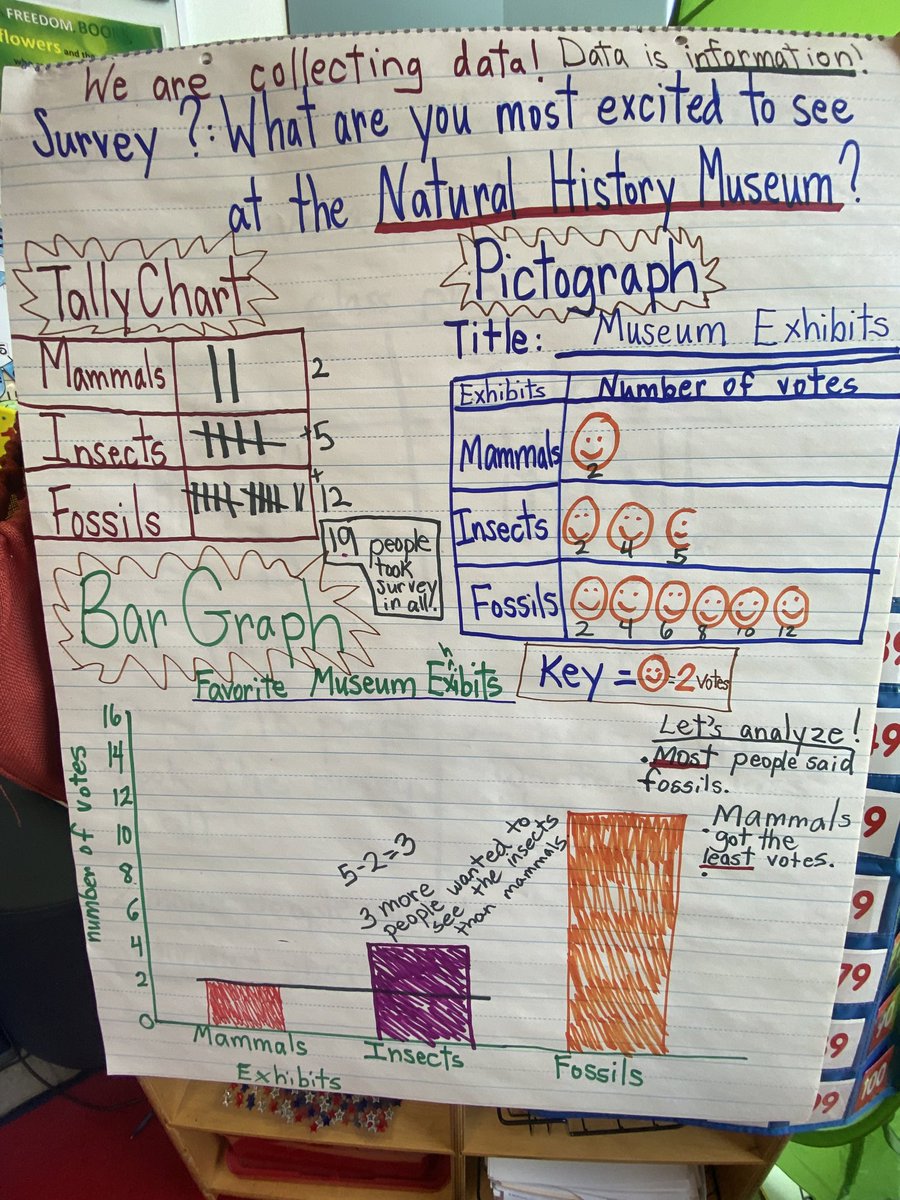 FREEDOM. BOO
flowers and th
We are collecting data! Data is information!
Survey ?: What are you most excited to see
at the Natural History Museum?
Tally Chart
Mammals 2
Insects +5
Fossils +12
19 people
took
survey
in all!
Pictograph
Title: Museum Exhibits
Exhibits Number of votes
Mammals
2
Insects
2 4 5
Fossils
2 4 6 8 10 12
Key = = 2 votes
Bar Graph
Favorite Museum Exhibits
number of votes
16
14
12
10
8
6
4
2
0
Mammals Insects Fossils
Exhibits
5-2=3
3 more
people wanted to
see the insects
than mammals
Let's analyze!
. Most people said
fossils.
. Mammals
got the
least votes.
.
9
9
79
9
99
100